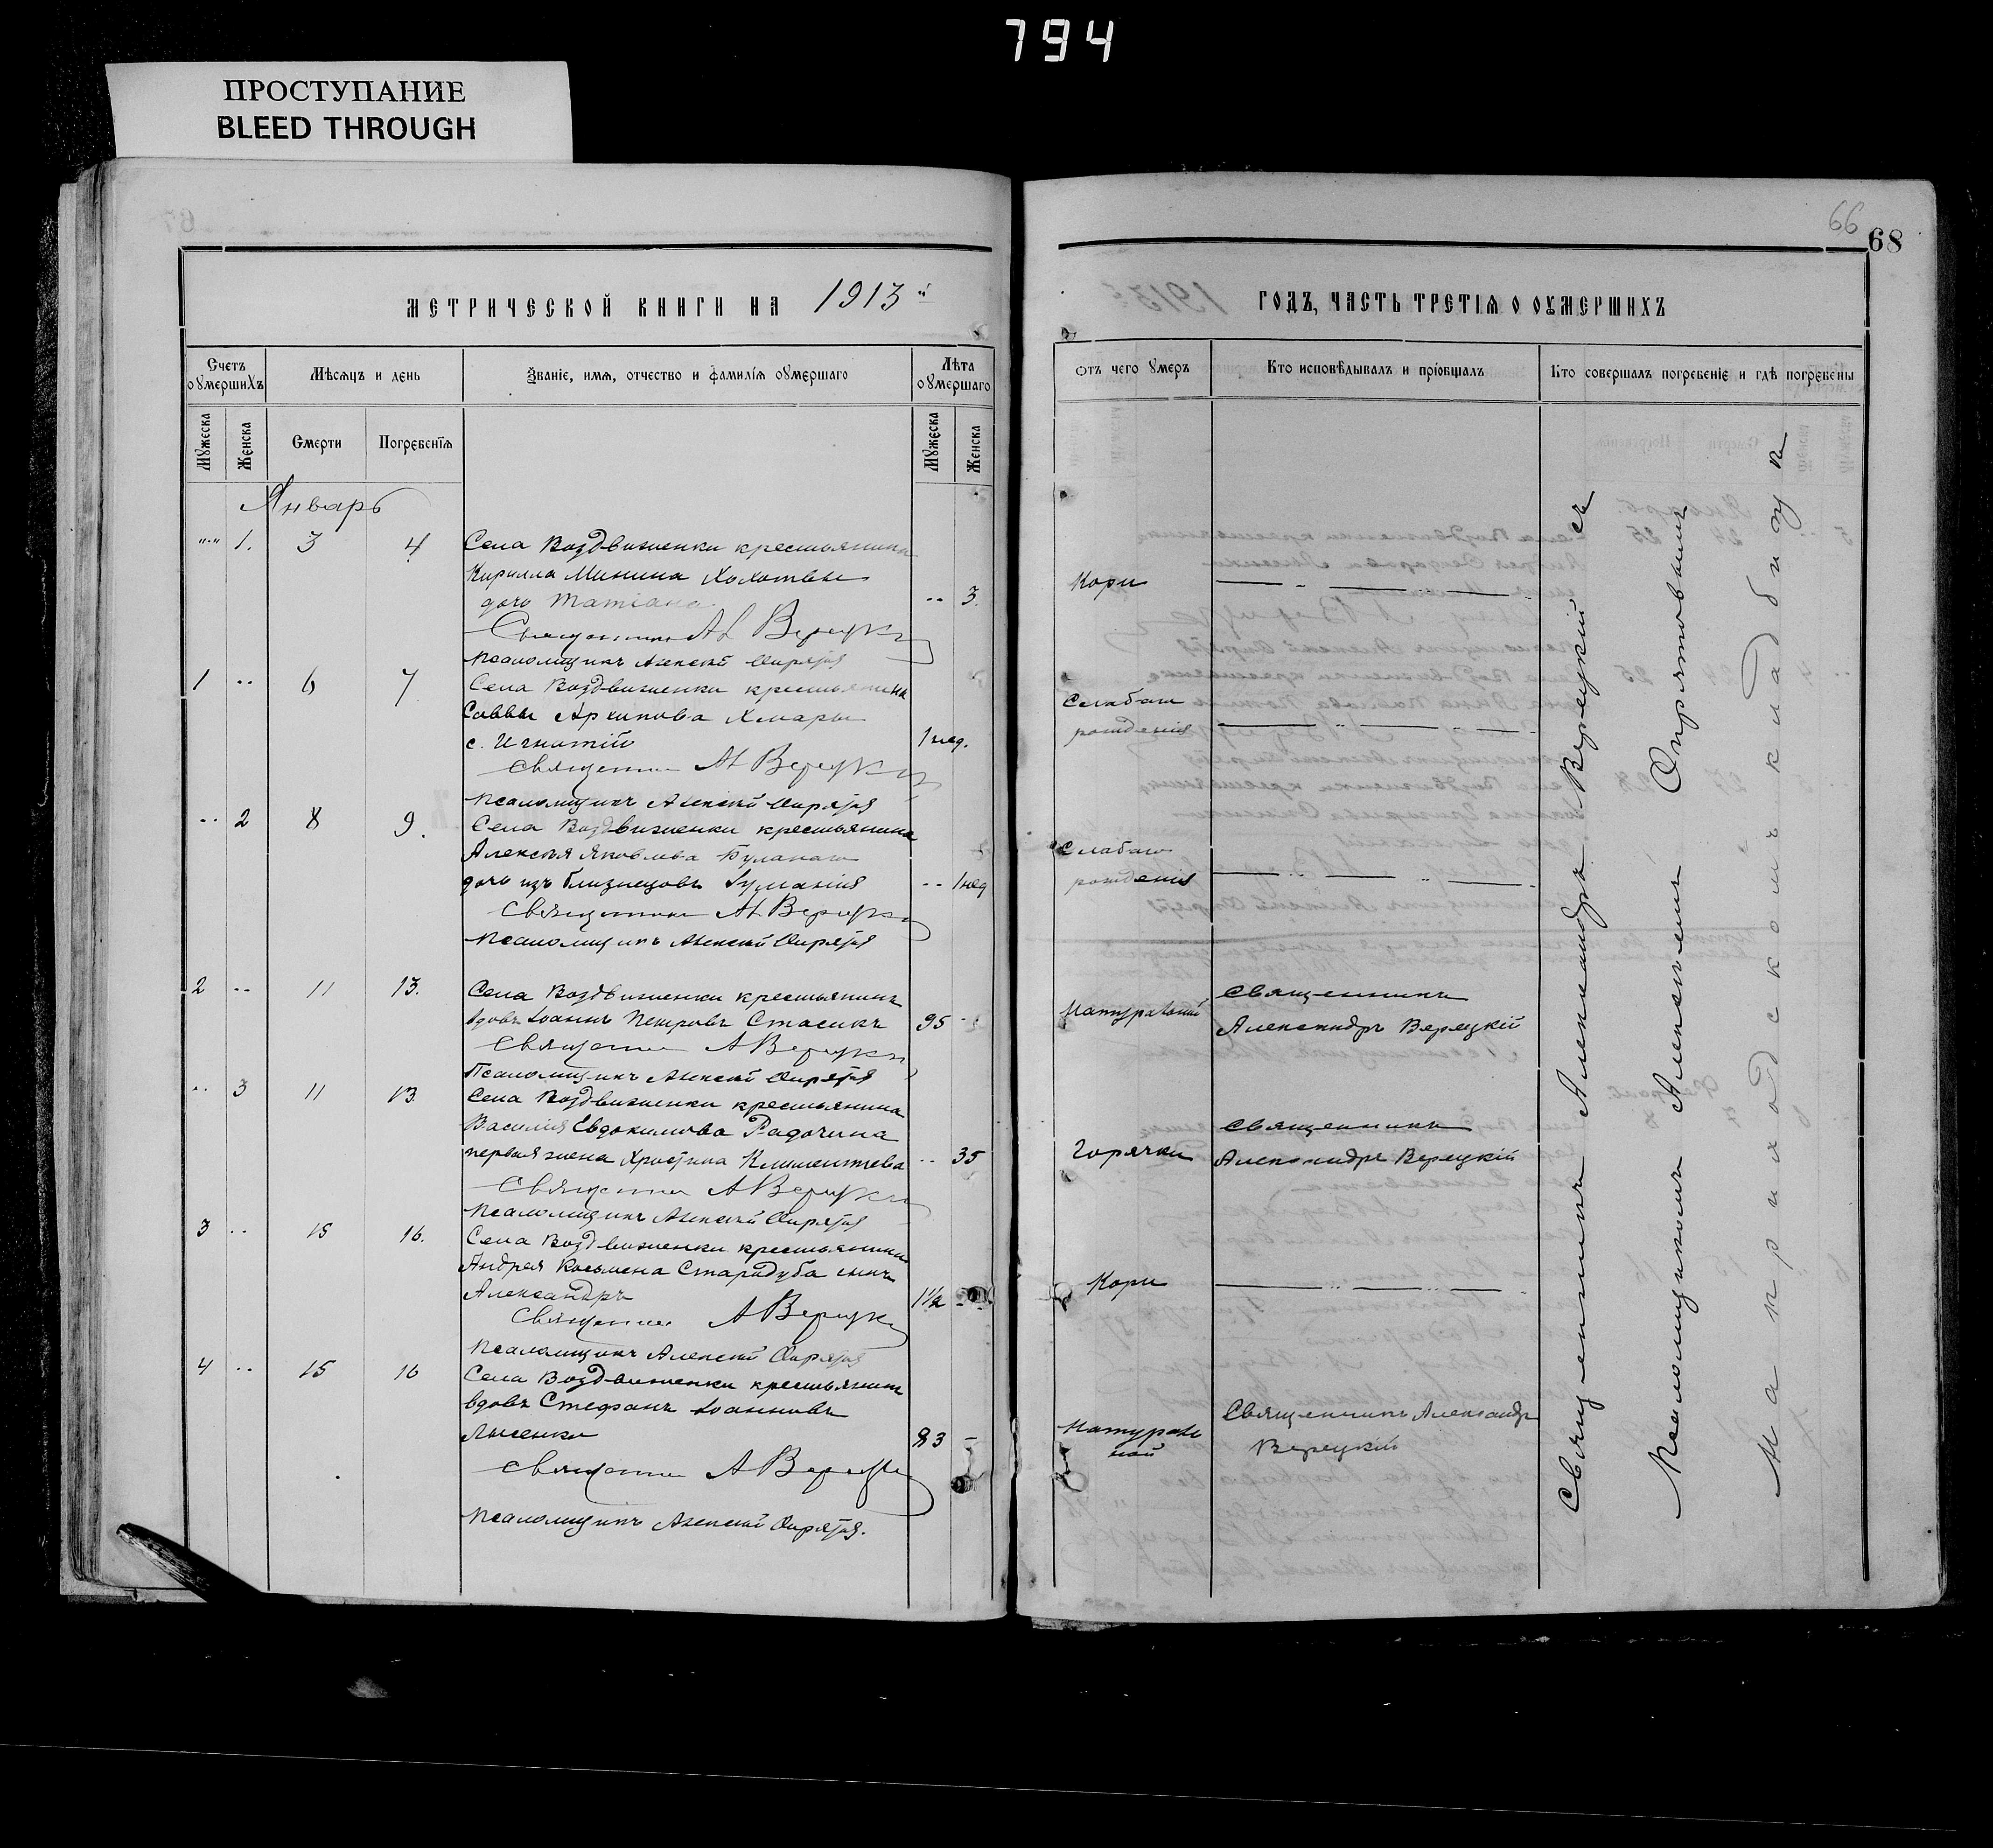 794
ПРОСТУПАНИЕ
BLEED THROUGH
66
68
МЕТРИЧЕСКОЙ КНИГИ НА 1913 й
ГОДЪ, ЧАСТЬ ТРЕТІѦ О ОУМЕРШИХЪ
Счетъ оумершихъ
Мѣсѧцъ и день
Званіе, имѧ, отчество и фамиліѧ оумершаго
Лѣта оумершаго
Отъ чего умеръ
Кто исповѣдывалъ и пріобщалъ
Кто совершалъ погребеніе и гдѣ погребены
Мужеска
Женска
Смерти
Погребеніѧ
Мужеска
Женска
Январь
1. 3 4 Села Воздвиженки крестьянина
Кирилла Минина
дочь Татіана 3. Кори
Священникъ Верецкій
Псаломщикъ Алексѣй
1 6 7 Села Воздвиженки крестьянина
Саввы Архипова Хмары Слабаго
с. Игнатій 1 нед. рожденія
Священник А Верецкій
Псаломщикъ Алексѣй
2 8 9. Села Воздвиженки крестьянина
Алексѣя Яковлева Буланаго Слабаго
дочь изъ близнецовъ Іуліанія 1 нед рожденія
Священник А Верецкій
Псаломщикъ Алексѣй
2 11 13. Села Воздвиженки крестьянинъ Священникъ
вдовъ Іоаннъ Петровъ Стасикъ 95 Натуральной Александръ Верецкій
Священник А Верецкій
Псаломщикъ Алексѣй
3 11 13. Села Воздвиженки крестьянина Священникъ
Василія Евдокимова Радочина
первая жена Христина Климентьева 35 Горячки Александръ Верецкій
Священник А Верецкій
Псаломщикъ Алексѣй
3 15 16. Села Воздвиженки крестьянина
Андрея Косьмина Стародуба сынъ Кори
Александръ 1½
Священник А Верецкій
Псаломщикъ Алексѣй
4 15 16 Села Воздвиженки крестьянинъ
вдовъ Стефанъ Іоанновъ Священникъ Александр
Лысенко 83 Натуральной Верецкій
Священник А Верецкій
Псаломщикъ Алексѣй
Священникъ Александръ Верецкій съ
Псаломщикомъ Алексѣемъ
на приходскомъ кладбищѣ